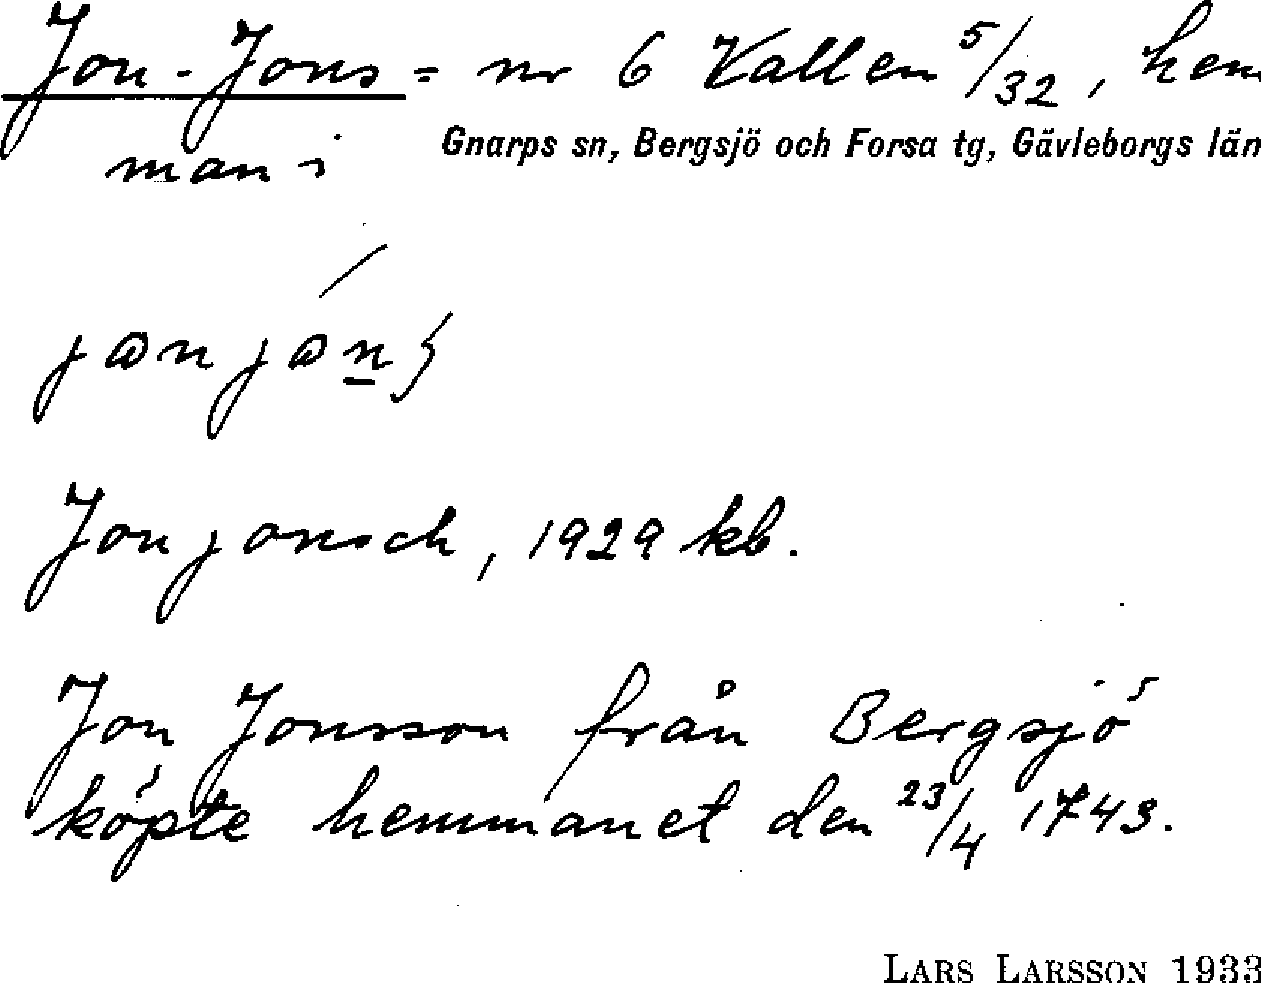 Jon-Jons = nr 6 Vallen 5/32, hem
man i
Gnarps sn, Bergsjö och Forsa tg, Gävleborgs län
Jon jonsch, 1929 kb.
Jon Jonsson från Bergsjö
köpte hemmanet den 23/4 1743.
LARS LARSSON 1933